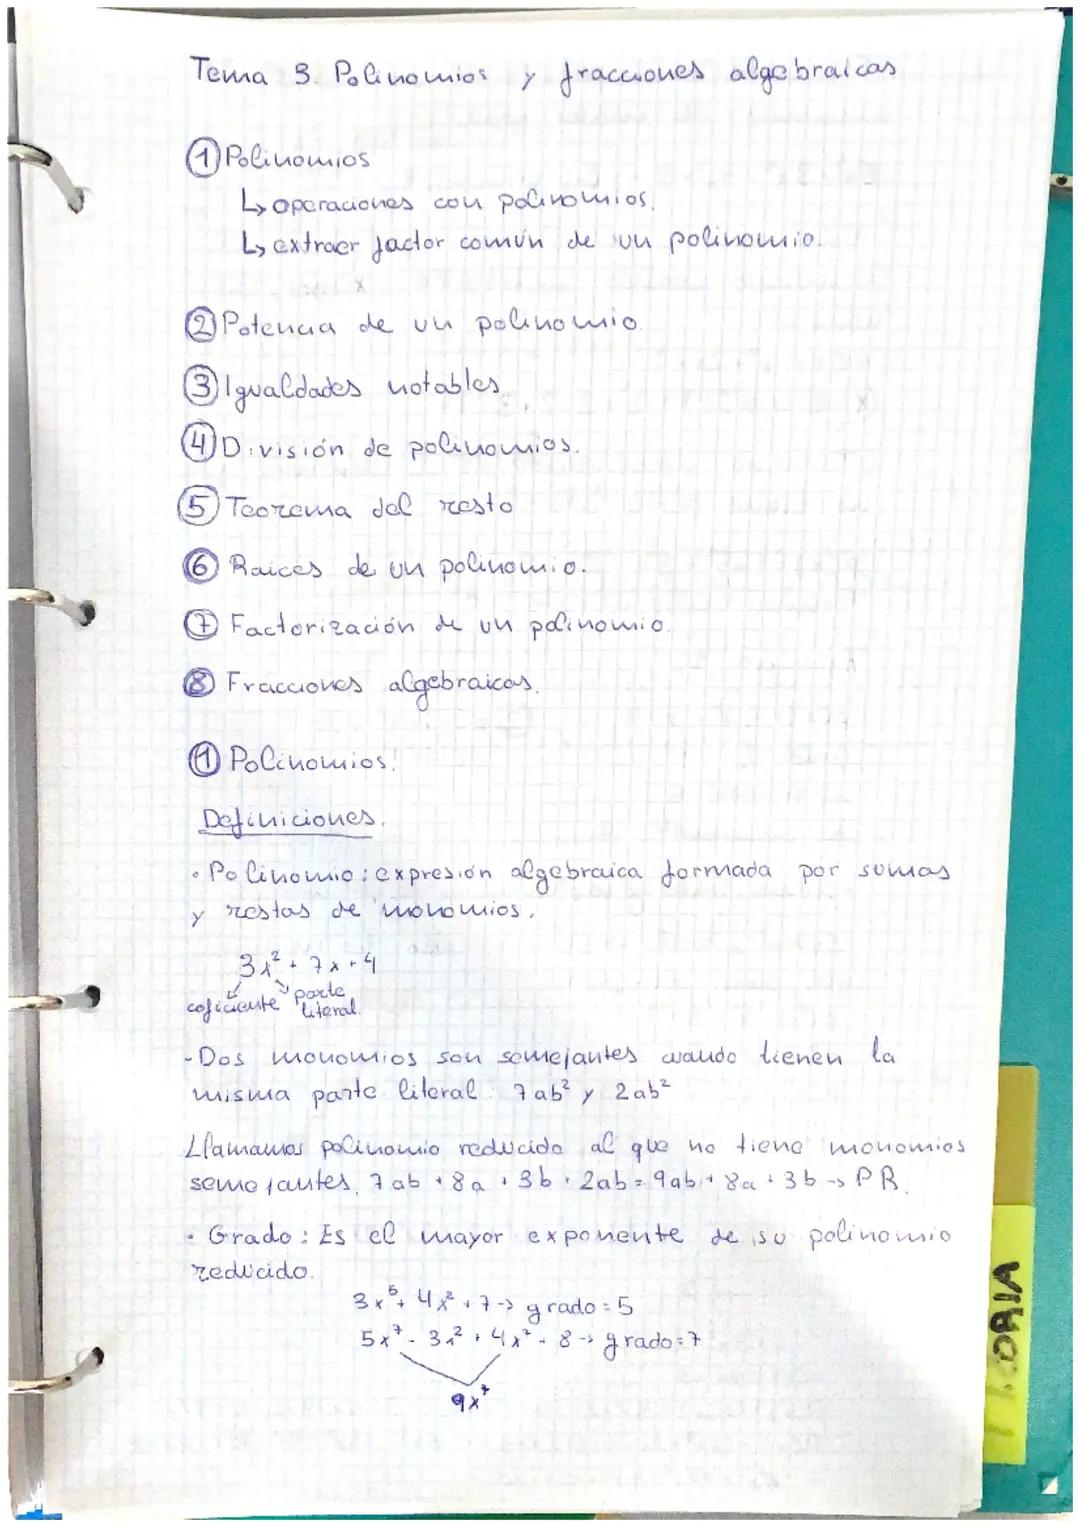 Tema 3. Polinomios y fracciones algebraicas
① Polinomios
↳ operaciones con polinomios.
↳ extraer factor común de un polinomio.
② Potencia de un polinomio.
③ Igualdades notables.
④ División de polinomios.
⑤ Teorema del resto
⑥ Raíces de un polinomio.
⑦ Factorización de un polinomio.
⑧ Fracciones algebraicas.
① Polinomios.
Definiciones.
• Polinomio: expresión algebraica formada por sumas
y restas de monomios.
3x² + 7x + 4
coficiente parte
literal.
- Dos monomios son semejantes cuando tienen la
misma parte literal: 7ab² y 2ab²
Llamamos polinomio reducido al que no tiene monomios
semejantes. 7ab + 8a + 3b + 2ab = 9ab + 8a + 3b → PR.
• Grado: Es el mayor exponente de su polinomio
reducido.
3x⁵ + 4x² + 7 → grado = 5
5x⁷ - 3x² + 4x⁷ - 8 → grado = 7
9x⁷